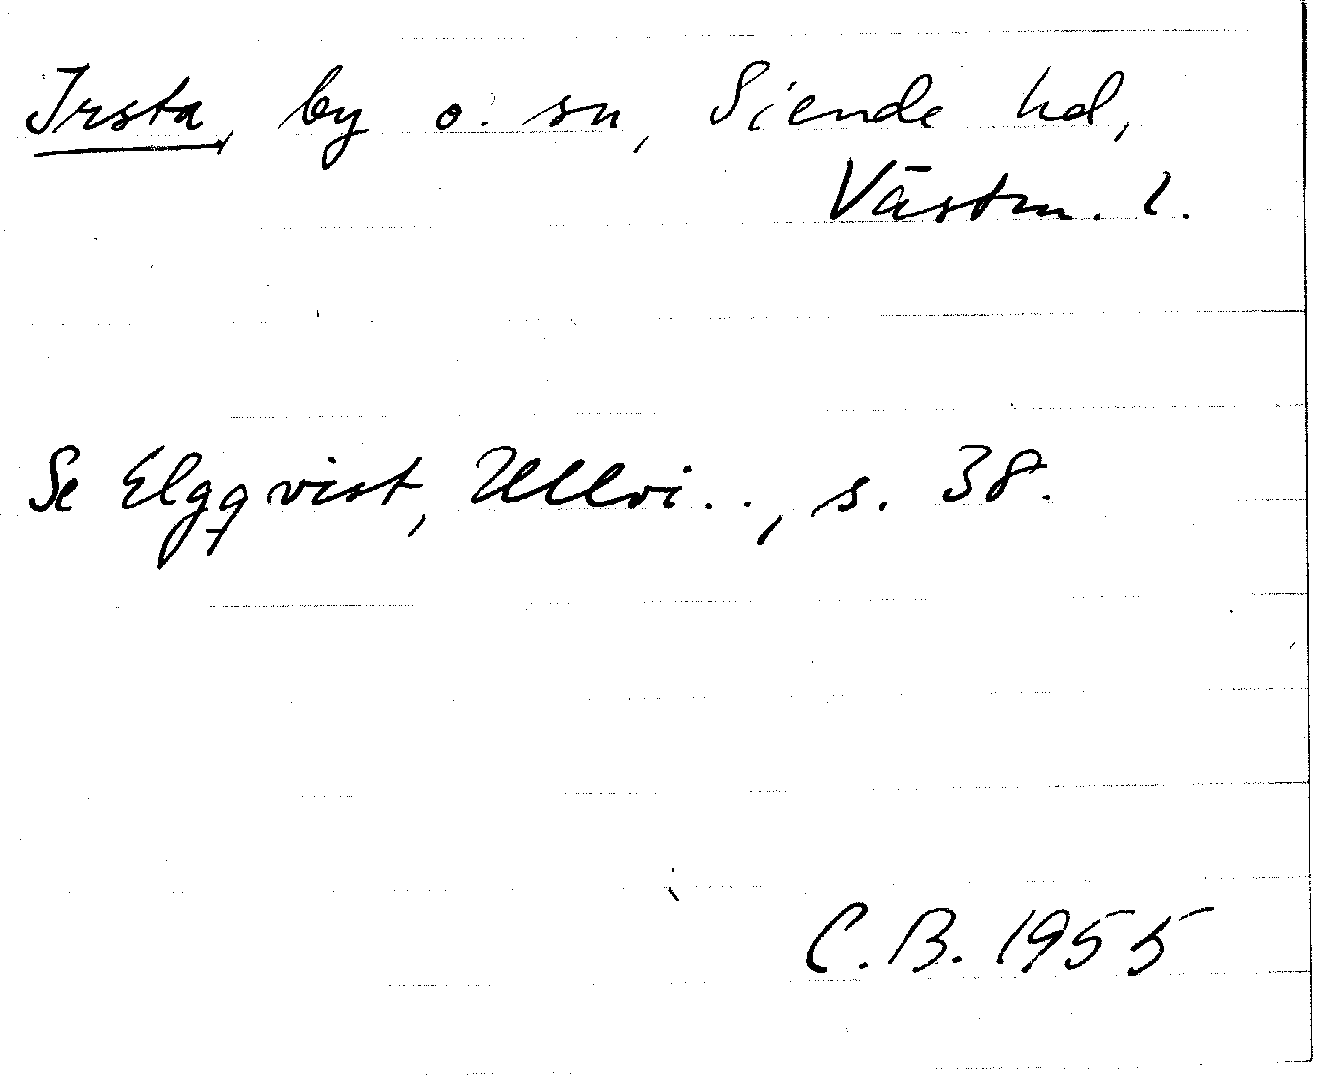 Irsta, by o. sn, Siende hd,
Västm. l.
Se Elgqvist, Ullvi.., s. 38.
C.B. 1955